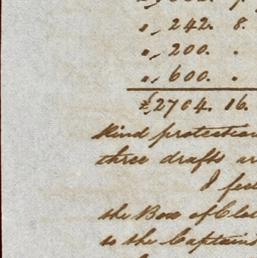 " 242. 8.
" 200. .
" 600. .
£2704. 16.
kind protection
three drafts ar
I fee
the Box of Clo
to the Captain